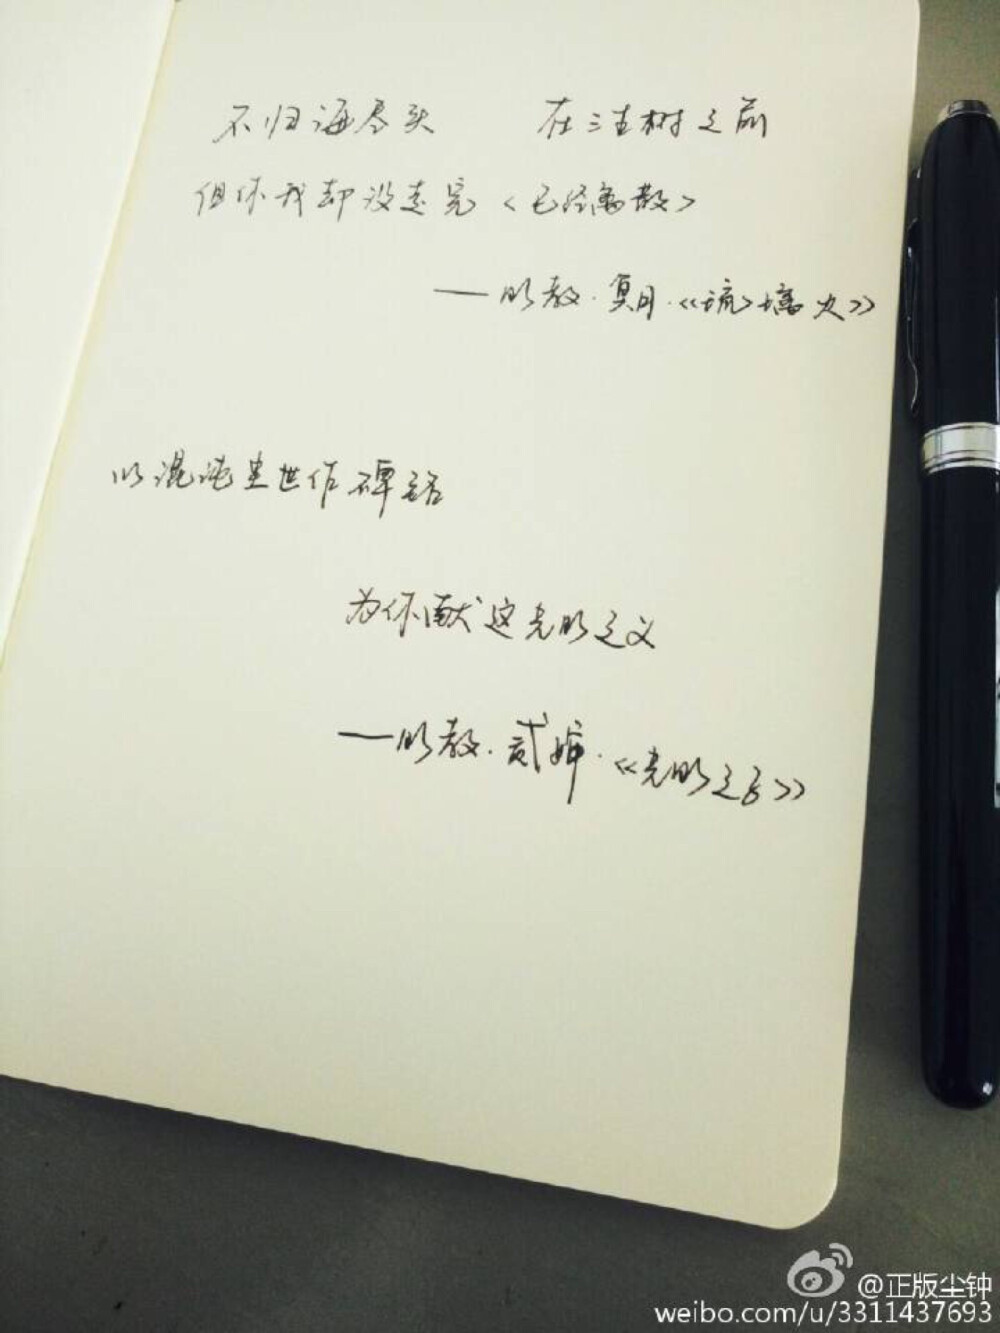 不归海尽头 在三生树之前
但你我却没走完<已经离散>
——明教·冥月·《琉璃火》
以混沌尘世作碑话
为你献这光明之义
——明教·贰婶·《光明之音》
@正版尘钟
weibo.com/u/3311437693